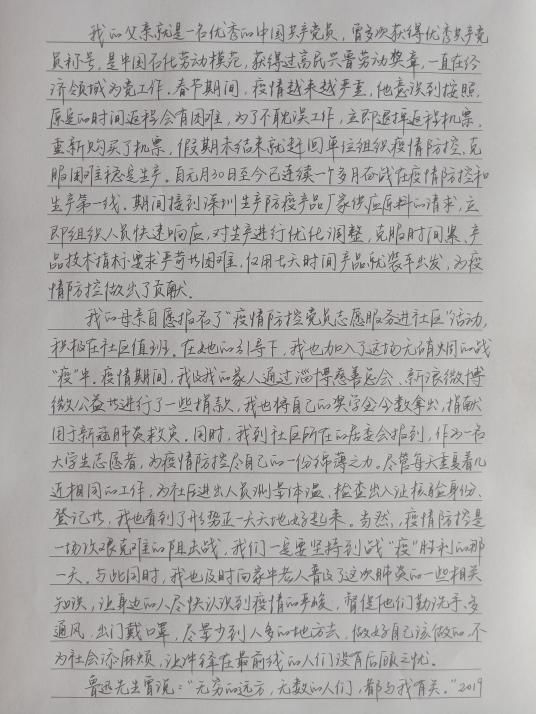 我的父亲就是一名优秀的中国共产党员，曾多次获得优秀共产党
员称号，是中国石化劳动模范，获得过高民兴鲁劳动奖章，一直在经
济领域为党工作。春节期间，疫情越来越严重，他意识到按照
原定的时间返程会有困难，为了不耽误工作，立即退掉返程机票，
重新购买了机票，假期未结束就赶回单位组织疫情防控、克
服困难稳定生产。自元月30日至今已连续一个多月奋战在疫情防控和
生产第一线，期间接到深圳生产防疫产品厂家供应原料的请求，立
即组织人员快速响应，对生产进行优化调整，克服时间紧、产
品技术指标要求严苛等困难，仅用七天时间产品就装车出发，为疫
情防控做出了贡献。
我的母亲自愿报名了“疫情防控党员志愿服务进社区”活动，
积极在社区值班。在她的引导下，我也加入了这场无硝烟的战
“疫”中。疫情期间，我及我的家人通过淄博慈善总会、新浪微博
微公益等进行了一些捐款，我也将自己的奖学金全数拿出，捐献
用于新冠肺炎救灾。同时，我到社区所在的居委会报到，作为一名
大学生志愿者，为疫情防控尽自己的一份绵薄之力。尽管每天重复着几
近相同的工作，为社区进出人员测量体温、检查出入证核验身份、
登记等，我也看到了形势正一天天地好起来。当然，疫情防控是
一场艰克难的阻击战，我们一定要坚持到战“疫”胜利的那
一天。与此同时，我也及时向家中老人普及了这次肺炎的一些相关
知识，让身边的人尽快认识到疫情的严峻，督促他们勤洗手、多
通风，出门戴口罩，尽量少到人多的地方去，做好自己该做的，不
为社会添麻烦，让冲锋在最前线的人们没有后顾之忧。
鲁迅先生曾说：“无穷的远方，无数的人们，都与我有关。”2019